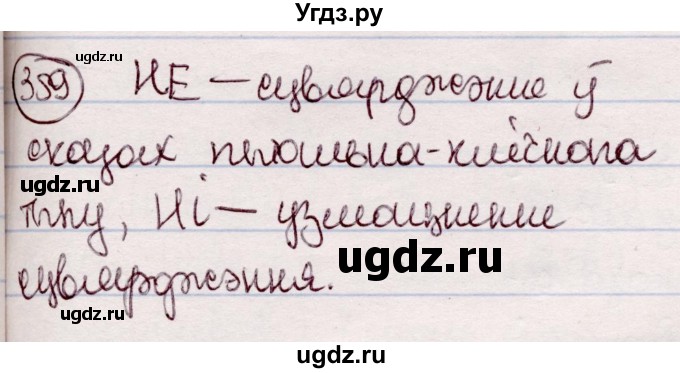 Угдз.ру
359 НЕ – сцвярджэнне ў
ugdz.ru
сказах пытальна-клічнага
ugdz.ru
ugdz.ru
тыпу, НІ – узмацненне
ugdz.ru
сцвярджэння.
ugdz.ru
ugdz.ru